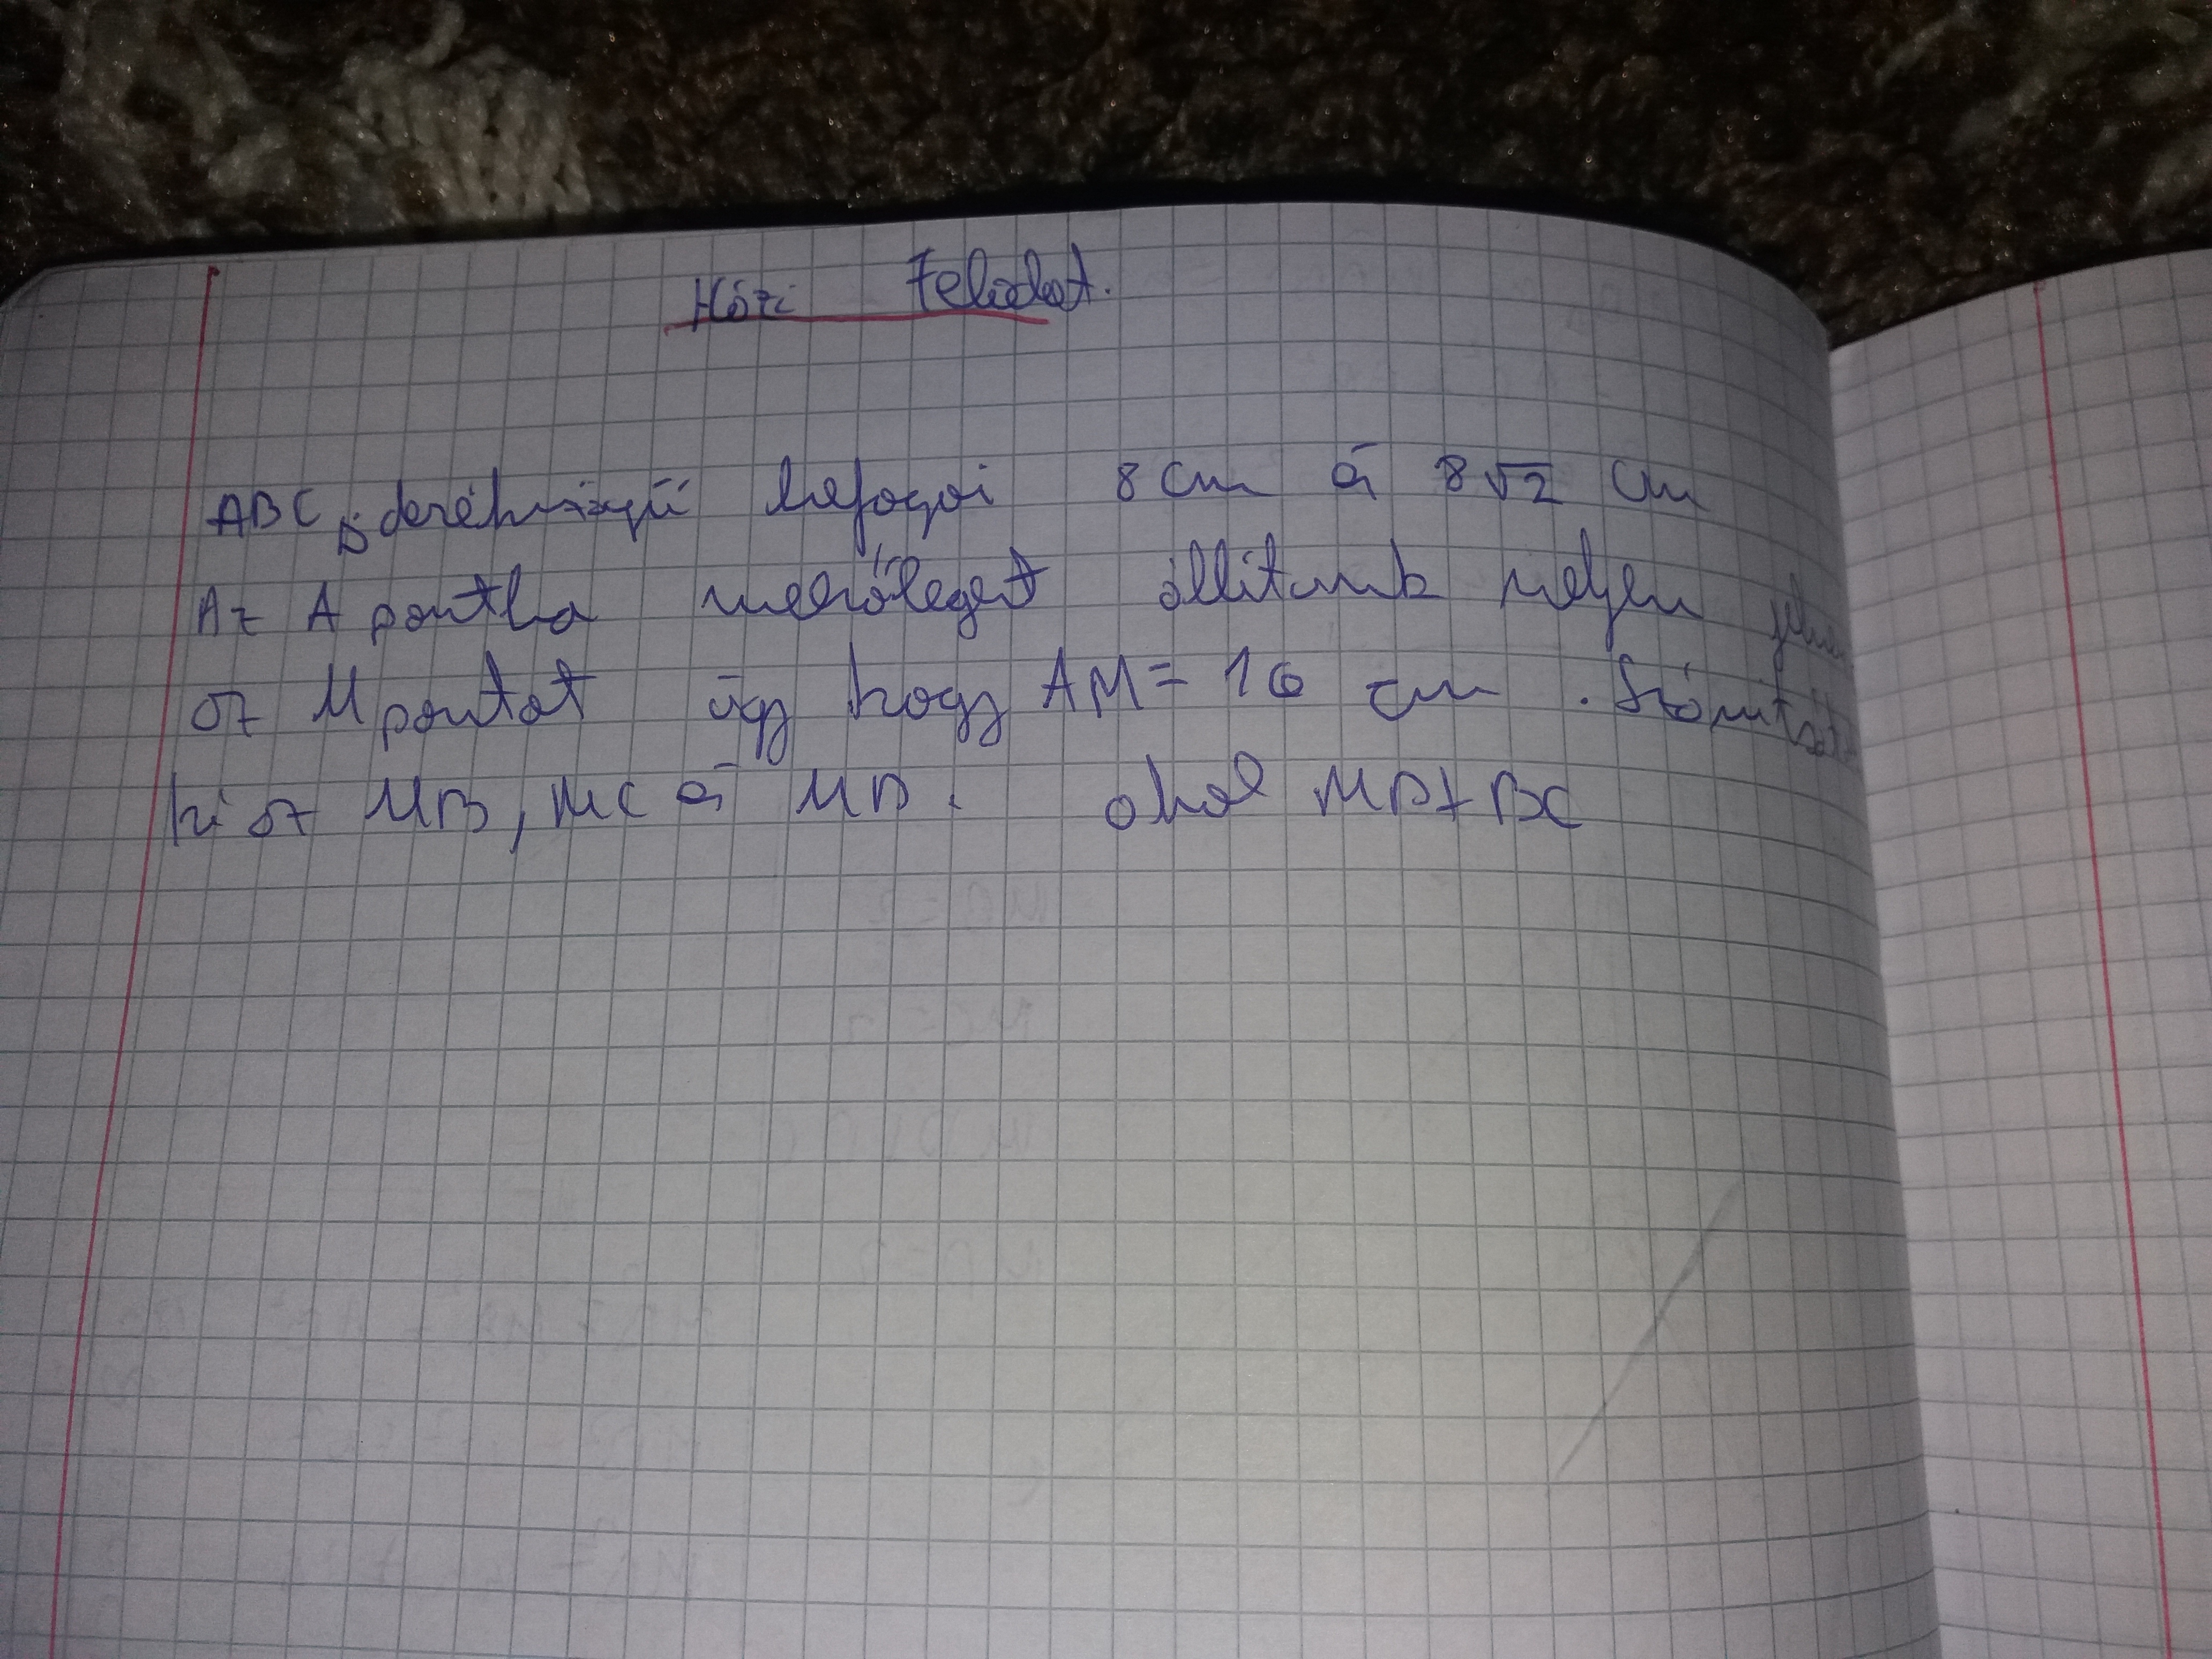 Házi Feladat.
ABC △ derékszögű befogói 8 cm és 8√2 cm
Az A pontba merőlegest állítunk melyen
az M pontot úgy hogy AM = 16 cm . Számítsát
ki az MB, MC és MD . ahol MD⊥BC